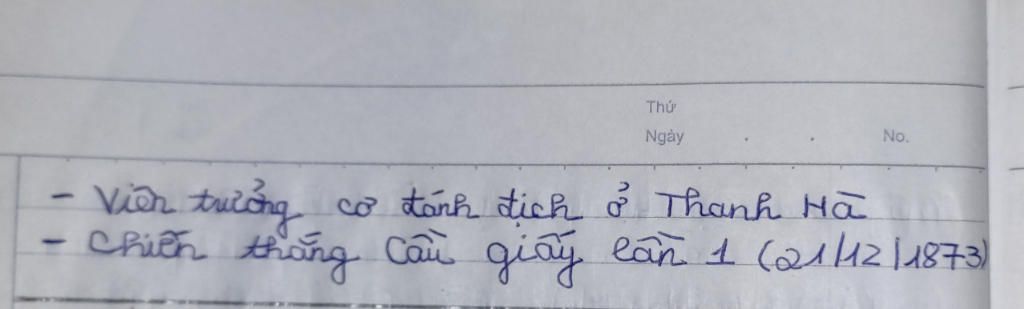 Thứ
Ngày . . No.
- Viên trưởng cơ đánh địch ở Thanh Hà
- Chiến thắng Cầu giấy lần 1 (21/12/1873)